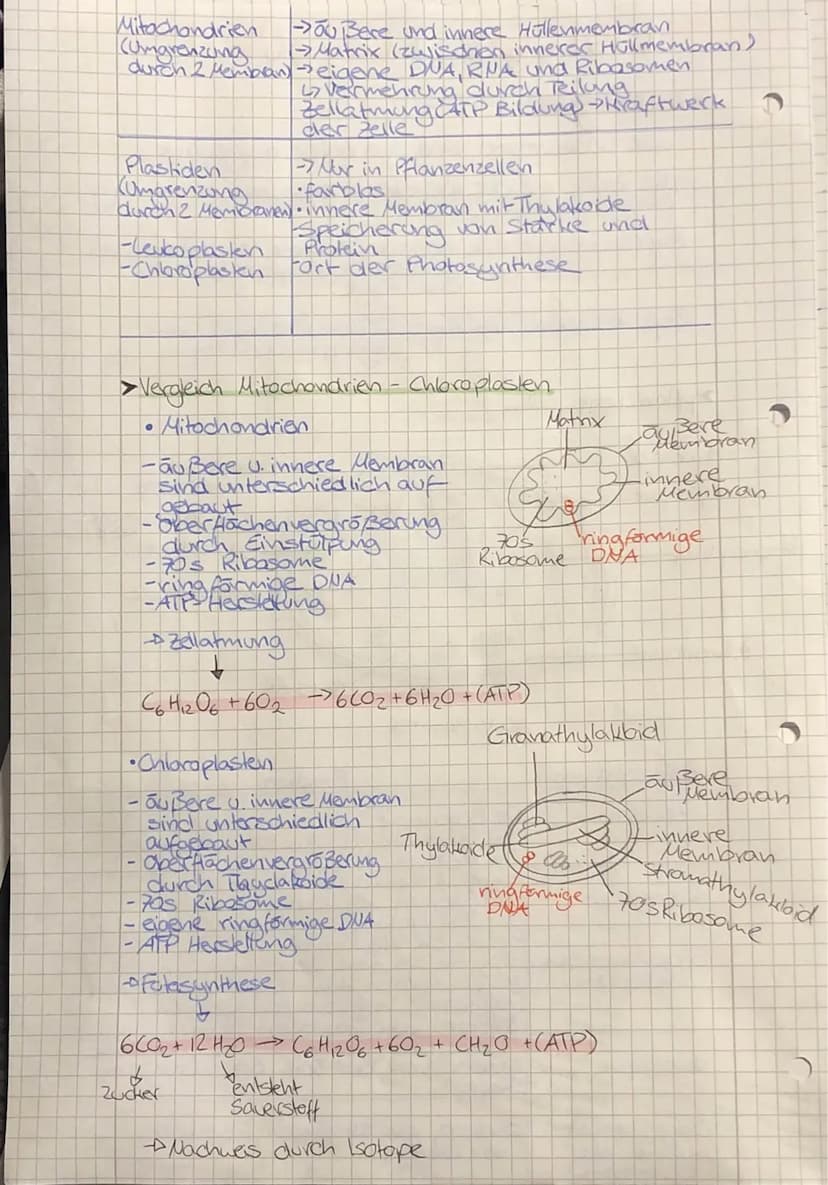 Mitochondrien
(Umgrenzung
durch 2 Membran)
→ äußere und innere Hüllenmembran
→ Matrix (zwischen innerer Hüllmembran)
→ eigene DNA, RNA und Ribosomen
↳ Vermehrung durch Teilung
Zellatmung (ATP Bildung) → Kraftwerk
der Zelle
Plastiden
(Umgrenzung
durch 2 Membranen)
-Leukoplasten
-Chloroplasten
→ Nur in Pflanzenzellen
• farblos
• innere Membran mit Thylakoide
-Speicherung von Stärke und
Protein
-ort der Photosynthese
➤ Vergleich Mitochondrien - Chloroplasten
• Mitochondrien
- äußere u. innere Membran
sind unterschiedlich auf
gebaut
- Oberflächenvergrößerung
durch Einstülpung
- 70s Ribosome
- ringförmige DNA
- ATP-Herstellung
→ Zellatmung
↓
C6H12O6 + 6O2 → 6CO2 + 6H2O + (ATP)
Matrix
äußere
Membran
innere
Membran
70s
Ribosome
ringförmige
DNA
• Chloroplasten
- äußere u. innere Membran
sind unterschiedlich
aufgebaut
- Oberflächenvergrößerung
durch Tayclakoide
- 70s Ribosome
- eigene ringförmige DNA
- ATP Herstellung
→ Fotosynthese
↓
Granathylakoid
äußere
Membran
innere
Membran
Thylakoide
Stromathylakoid
ringförmige
DNA
70s Ribosome
6CO2 + 12H2O → C6H12O6 + 6O2 + CH2O + (ATP)
Zucker
entsteht
Sauerstoff
→ Nachweis durch Isotope